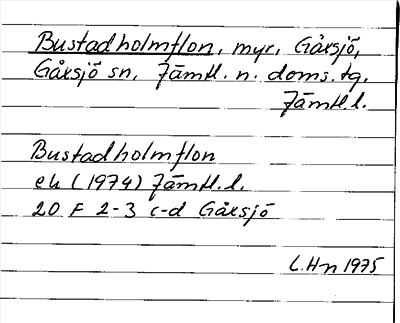 Bustadholmflon, myr, Gåxsjö,
Gåxsjö sn, Jämtl. n. doms. tg.
Jämtl. l.
Bustadholmflon
ek (1974) Jämtl. l.
20 F 2-3 c-d Gåxsjö
L.Hn 1975